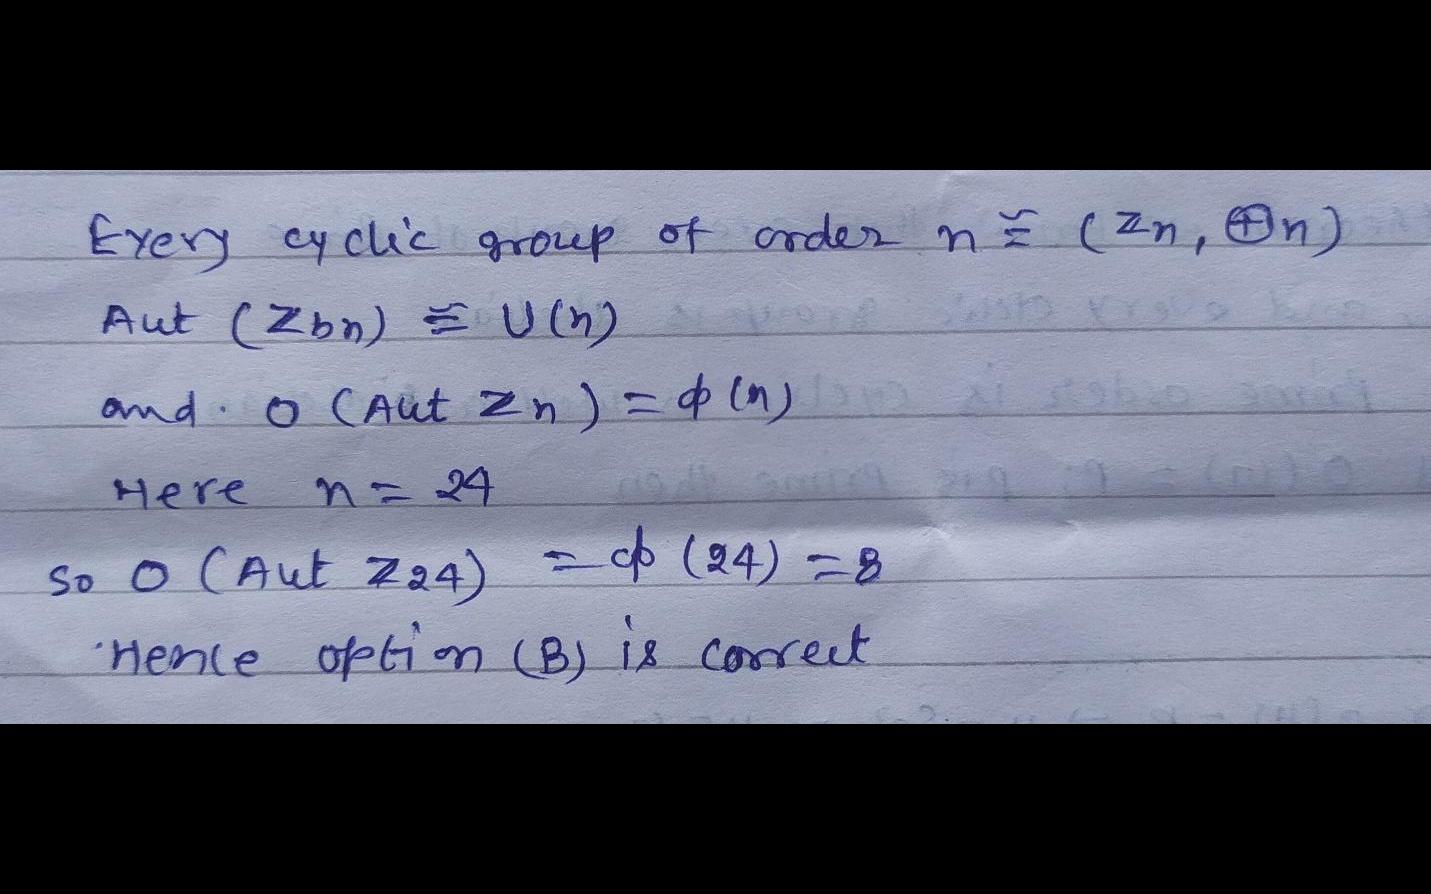 Every cyclic group of order n ≅ (Zn, ⊕n)
Aut (Zbn) ≅ U(n)
and . O (Aut Zn) = ϕ (n)
Here n = 24
So O (Aut Z24) = ϕ (24) = 8
Hence option (B) is correct